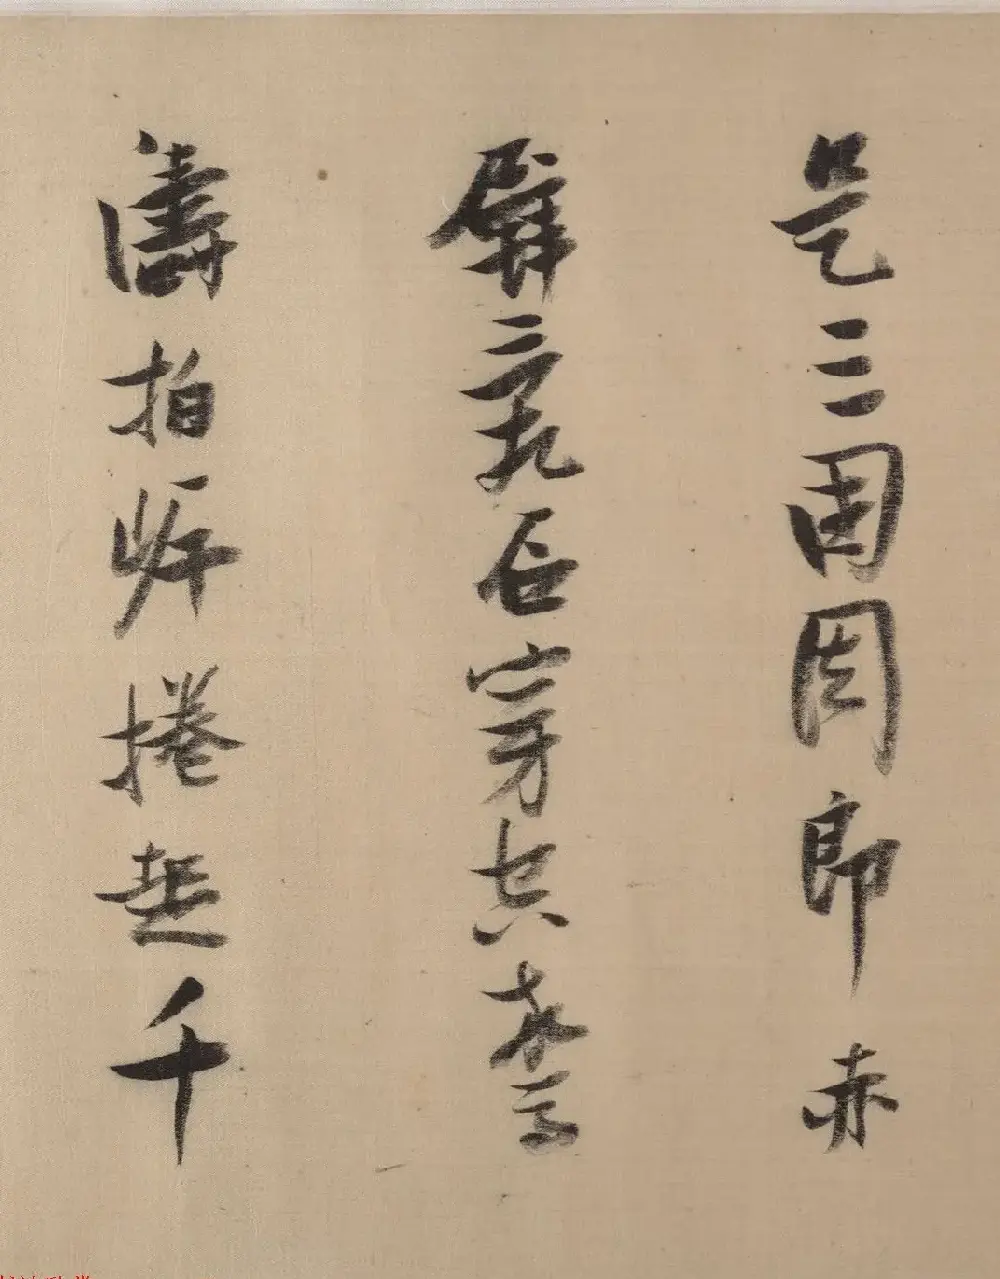 是三國周郎赤
壁亂石穿空驚
濤拍岸捲起千